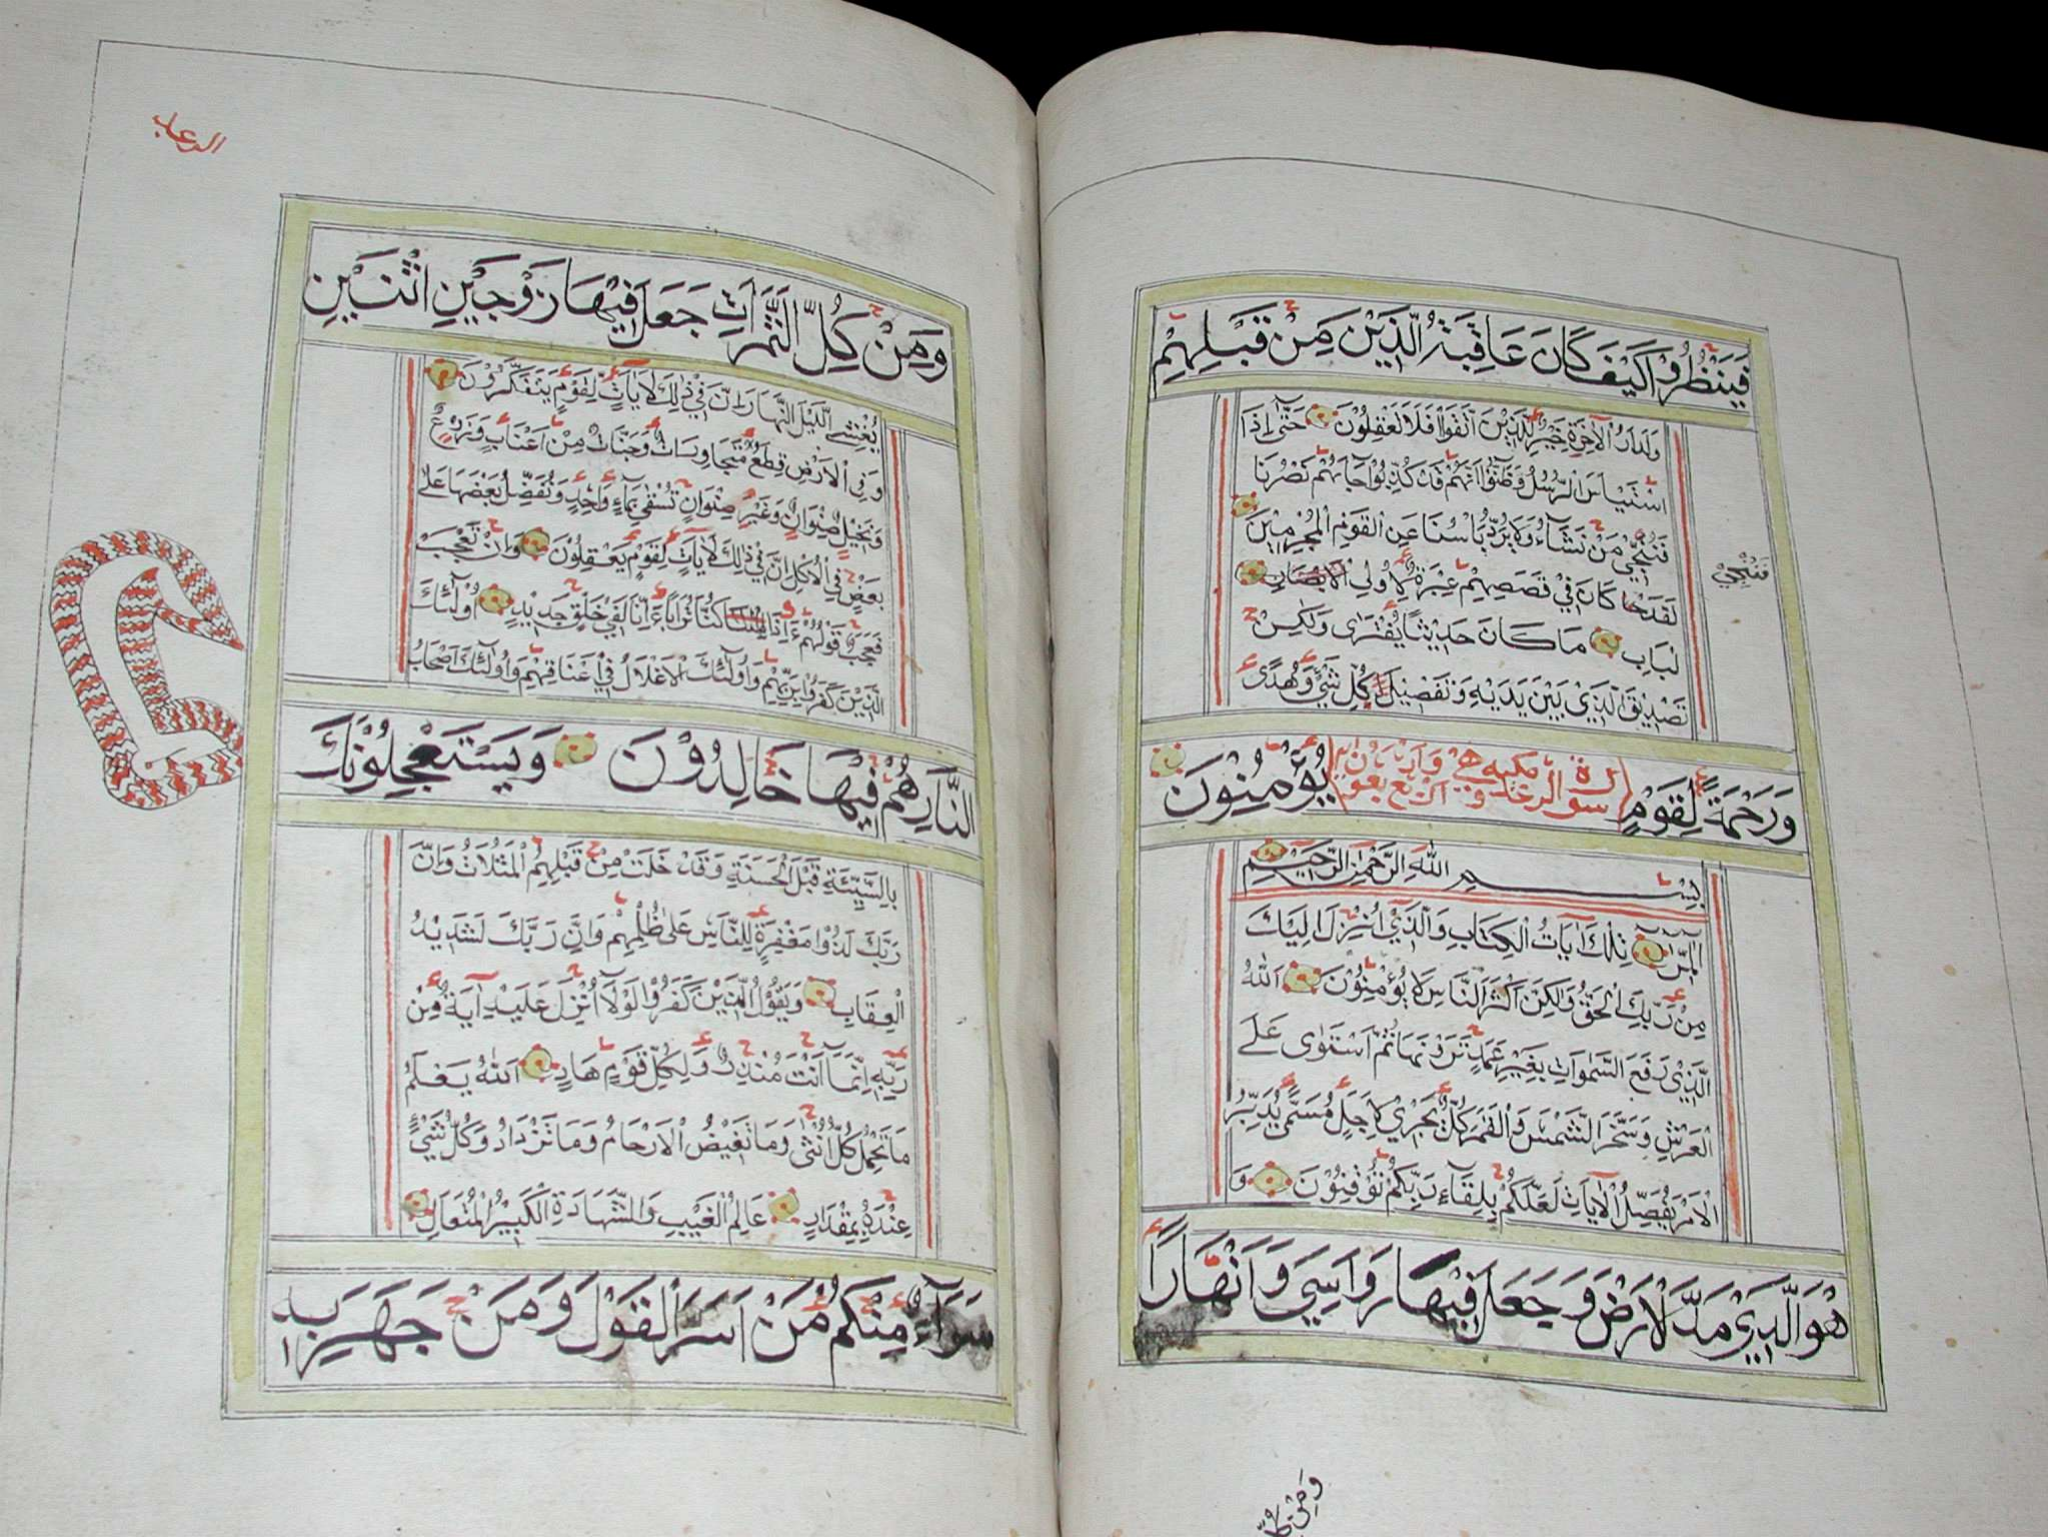 فَيَنْظُرُوْا كَيْفَ كَانَ عَاقِبَةُ الَّذِيْنَ مِنْ قَبْلِهِمْ
وَلَدَارُ الْاٰخِرَةِ خَيْرٌ لِلَّذِيْنَ اتَّقَوْا اَفَلَا تَعْقِلُوْنَ حَتّٰى اِذَا
اسْتَيْاَسَ الرُّسُلُ وَظَنُّوْا اَنَّهُمْ قَدْ كُذِّبُوْا جَاءَهُمْ نَصْرُنَا
فَنُجِّيَ مَنْ نَشَاءُ وَلَا يُرَدُّ بَاْسُنَا عَنِ الْقَوْمِ الْمُجْرِمِيْنَ
فَنُجِّيَ
لَقَدْ كَانَ فِيْ قَصَصِهِمْ عِبْرَةٌ لِاُولِي الْاَبْصَارِ
لْبَابِ مَا كَانَ حَدِيْثًا يُفْتَرٰى وَلٰكِنْ
تَصْدِيْقَ الَّذِيْ بَيْنَ يَدَيْهِ وَتَفْصِيْلَ كُلِّ شَيْءٍ وَهُدًى
وَرَحْمَةً لِقَوْمٍ يُؤْمِنُوْنَ
سورة الرعد مكية وهي
بِسْمِ اللّٰهِ الرَّحْمٰنِ الرَّحِيْمِ
الٓمّٓرٰ تِلْكَ اٰيَاتُ الْكِتَابِ وَالَّذِيْ اُنْزِلَ اِلَيْكَ
مِنْ رَبِّكَ الْحَقُّ وَلٰكِنَّ اَكْثَرَ النَّاسِ لَا يُؤْمِنُوْنَ اَللّٰهُ
الَّذِيْ رَفَعَ السَّمٰوَاتِ بِغَيْرِ عَمَدٍ تَرَوْنَهَا ثُمَّ اسْتَوٰى عَلَى
الْعَرْشِ وَسَخَّرَ الشَّمْسَ وَالْقَمَرَ كُلٌّ يَجْرِيْ لِاَجَلٍ مُسَمًّى يُدَبِّرُ
الْاَمْرَ يُفَصِّلُ الْاٰيَاتِ لَعَلَّكُمْ بِلِقَاءِ رَبِّكُمْ تُوْقِنُوْنَ وَ
هُوَ الَّذِيْ مَدَّ الْاَرْضَ وَجَعَلَ فِيْهَا رَوَاسِيَ وَاَنْهَارًا
وَمِنْ كُلِّ
الرعد
وَمِنْ كُلِّ الثَّمَرَاتِ جَعَلَ فِيْهَا زَوْجَيْنِ اثْنَيْنِ
يُغْشِي الَّيْلَ النَّهَارَ اِنَّ فِيْ ذٰلِكَ لَاٰيَاتٍ لِقَوْمٍ يَتَفَكَّرُوْنَ
وَفِي الْاَرْضِ قِطَعٌ مُتَجَاوِرَاتٌ وَجَنَّاتٌ مِنْ اَعْنَابٍ وَزَرْعٌ
وَنَخِيْلٌ صِنْوَانٌ وَغَيْرُ صِنْوَانٍ تُسْقٰى بِمَاءٍ وَاحِدٍ وَنُفَضِّلُ بَعْضَهَا عَلٰى
بَعْضٍ فِي الْاُكُلِ اِنَّ فِيْ ذٰلِكَ لَاٰيَاتٍ لِقَوْمٍ يَعْقِلُوْنَ وَاِنْ تَعْجَبْ
فَعَجَبٌ قَوْلُهُمْ ءَاِذَا كُنَّا تُرَابًا ءَاِنَّا لَفِيْ خَلْقٍ جَدِيْدٍ اُولٰٓئِكَ
الَّذِيْنَ كَفَرُوْا بِرَبِّهِمْ وَاُولٰٓئِكَ الْاَغْلَالُ فِيْ اَعْنَاقِهِمْ وَاُولٰٓئِكَ اَصْحَابُ
النَّارِ هُمْ فِيْهَا خَالِدُوْنَ وَيَسْتَعْجِلُوْنَكَ
بِالسَّيِّئَةِ قَبْلَ الْحَسَنَةِ وَقَدْ خَلَتْ مِنْ قَبْلِهِمُ الْمَثُلَاتُ وَاِنَّ
رَبَّكَ لَذُوْا مَغْفِرَةٍ لِلنَّاسِ عَلٰى ظُلْمِهِمْ وَاِنَّ رَبَّكَ لَشَدِيْدُ
الْعِقَابِ وَيَقُوْلُ الَّذِيْنَ كَفَرُوْا لَوْلَا اُنْزِلَ عَلَيْهِ اٰيَةٌ مِنْ
رَبِّهِ اِنَّمَا اَنْتَ مُنْذِرٌ وَلِكُلِّ قَوْمٍ هَادٍ اَللّٰهُ يَعْلَمُ
مَا تَحْمِلُ كُلُّ اُنْثٰى وَمَا تَغِيْضُ الْاَرْحَامُ وَمَا تَزْدَادُ وَكُلُّ شَيْءٍ
عِنْدَهُ بِمِقْدَارٍ عَالِمُ الْغَيْبِ وَالشَّهَادَةِ الْكَبِيْرُ الْمُتَعَالِ
سَوَاءٌ مِنْكُمْ مَنْ اَسَرَّ الْقَوْلَ وَمَنْ جَهَرَ بِهِ